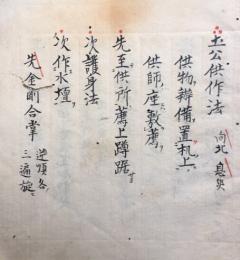 土公供作法 向北
供物辨備置机上
供師座敷薦
先至供所薦上蹲踞
次護身法
次作水壇
先金剛合掌 逆順各三遍旋